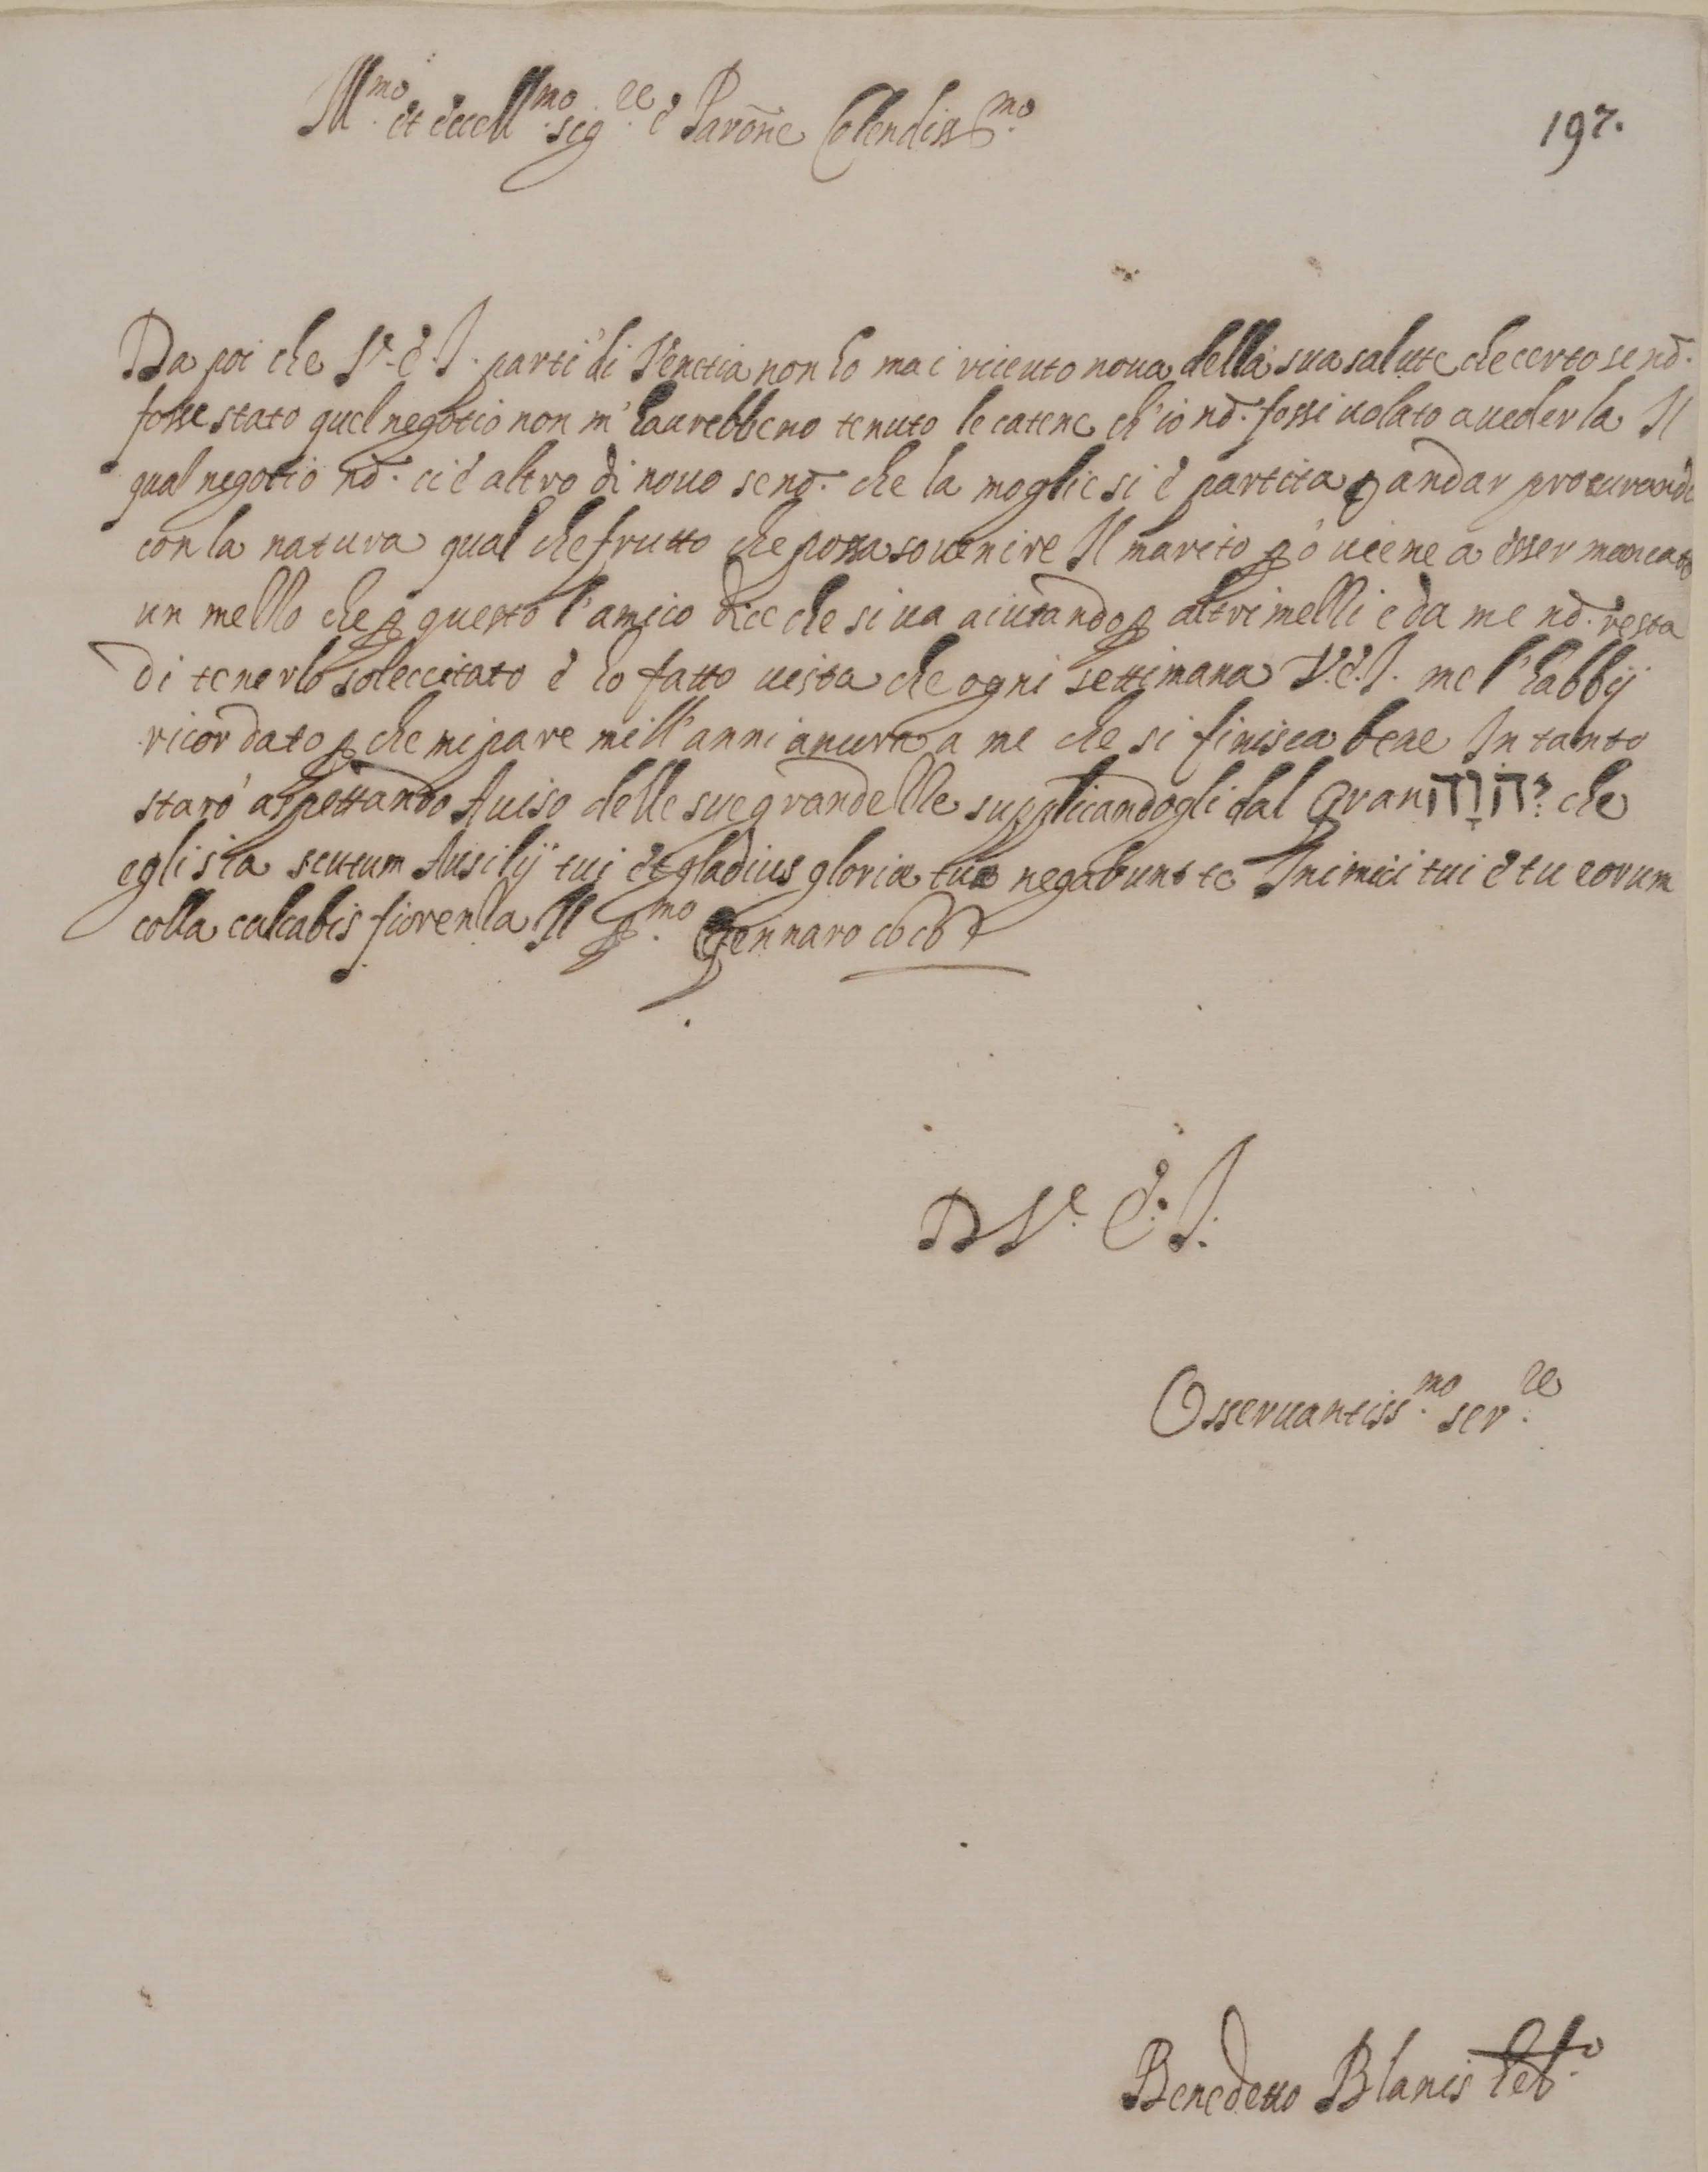 Ill.mo et eccell.mo sig.re e Parōne Colendiss.mo
197.
Da poi che V.E.I. parti di Venetia non ho mai riceuto noua della sua salute che certo se nō.
fosse stato quel negotio non m'haurebbeno tenuto le catene ch'io nō. fossi uolato a uederla Il
qual negotio nō. ci è altro di nouo se nō. che la moglie si è partita p andar procurando
con la natura qual che frutto che possa souenire Il marito pò uiene a esser mancato
un mezzo che p questo l'amico dice che si ua aiutando p altri mezzi e da me nō. resta
di tenerlo soleccitato è ho fatto uista che ogni settimana V.E.I. me l'habbij
ricordato p che mi pare mill'anni ancura a me che si finisca bene In tanto
starò aspettando Auiso delle sue grandezze supplicandogli dal Gran יְהֹוָה che
egli sia scutum Ausilij tui et gladius gloriæ tuæ negabunt te Inimici tui è tu eorum
colla calcabis fiorenza Il p.mo Gennaro
D V.E.I.
Osseruantiss.mo ser.re
Benedetto Blanis heb.o